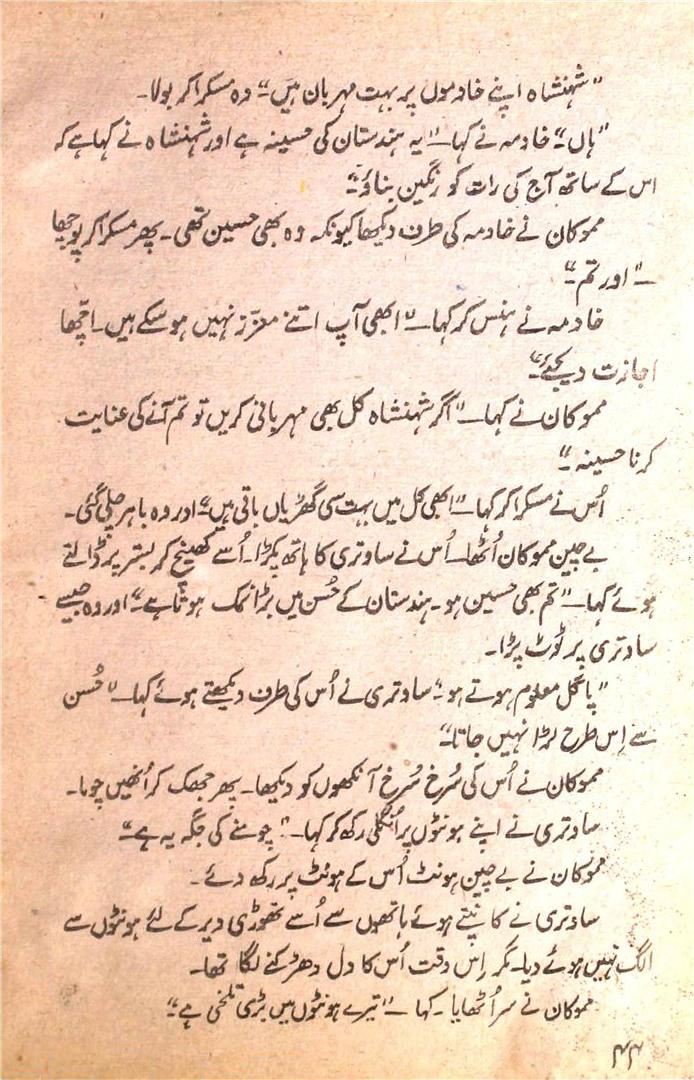 "شہنشاہ اپنے خادموں پر بہت مہربان ہیں۔" وہ مسکرا کر بولا۔
"ہاں۔" خادمہ نے کہا۔ "یہ ہندستان کی حسینہ ہے اور شہنشاہ نے کہا ہے کہ
اس کے ساتھ آج کی رات کو رنگین بناؤ۔"
مموکان نے خادمہ کی طرف دیکھا کیونکہ وہ بھی حسین تھی۔ پھر مسکرا کر پوچھا
۔ "اور تم۔"
خادمہ نے ہنس کر کہا۔ "ابھی آپ اتنے معزّز نہیں ہو سکے ہیں۔ اچّھا
اجازت دیجئے۔"
مموکان نے کہا۔ "اگر شہنشاہ کل بھی مہربانی کریں تو تم آنے کی عنایت
کرنا حسینہ۔"
اُس نے مسکرا کر کہا۔ "ابھی کل میں بہت سی گھڑیاں باقی ہیں۔" اور وہ باہر چلی گئی۔
بے چین مموکان اُٹھا۔ اُس نے ساوتری کا ہاتھ پکڑا۔ اُسے کھینچ کر بستر پر ڈالتے
ہوئے کہا۔ "تم بھی حسین ہو۔ ہندستان کے حُسن میں بڑا نمک ہوتا ہے۔" اور وہ جیسے
ساوتری پر ٹوٹ پڑا۔
"پاگل معلوم ہوتے ہو۔" ساوتری نے اُس کی طرف دیکھتے ہوئے کہا۔ "حُسن
سے اِس طرح لڑا نہیں جاتا۔"
مموکان نے اُس کی سُرخ سُرخ آنکھوں کو دیکھا۔ پھر جھک کر اُنھیں چوما۔
ساوتری نے اپنے ہونٹوں پر اُنگلی رکھ کر کہا۔ "چومنے کی جگہ یہ ہے۔"
مموکان نے بے چین ہونٹ اُس کے ہونٹ پر رکھ دئے۔
ساوتری نے کانپتے ہوئے ہاتھوں سے اُسے تھوڑی دیر کے لئے ہونٹوں سے
الگ نہیں ہونے دیا۔ مگر اِس وقت اُس کا دل دھڑکنے لگا تھا۔
مموکان نے سر اُٹھایا۔ کہا۔ "تیرے ہونٹوں میں بڑی تلخی ہے۔"